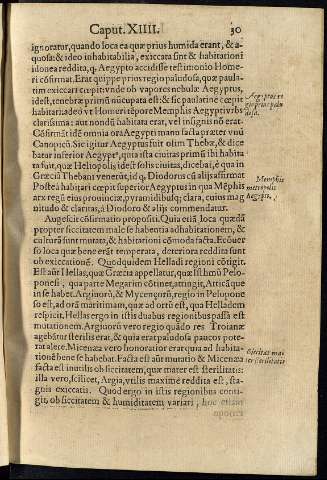 Caput. XIIII. 30
ignoratur, quando loca ea quæ prius humida erant, & a-
quosa: & ideo inhabitabilia, exiccata sunt & habitationi
idonea reddita, q. Aegypto accidisse testimonio Home-
ri cõfirmat. Erat quippe prius regio paludosa, quæ paula-
tim exiccari cœpit: vnde ob vapores nebulæ Aegyptus,
idest, tenebræ primũ nuncupata est: & sic paulatine cœpit
habitari, adeò vt Homeri tẽpore Memphis Aegypti vrbs
clarissima: aut nondũ habitata erat, vel insignis nõ erat.
Cõfirmat idẽ omnia ora Aegypti manu facta præter vnũ
Canopicũ. Sic igitur Aegyptus fuit olim Thebæ, & dice
batur inferior Aegypt⁹, quia ista ciuitas primũ ibi habita
ta fuit, quæ Heliopolis, idest solis ciuitas, dicebat, é quæ in
Græciũ Thebani venerũt, id q. Diodorus cũ alijs affirmat
Posteà habitari cœpit superior Aegyptus in qua Mẽphis
arx regũ eius prouinciæ, pyramidibusq; clara, cuius mag
nitudo & claritas, à Diodoro & alijs commendatur.
Auget sic cõfirmatio propositi. Quia etiã loca quædã
propter siccitatem malè se habentia ad habitationem, &
culturã sunt mutata, & habitationi cõmoda facta. Ecõuer
so loca quæ bene erãt temperata, deteriora reddita sunt
ob exiccationẽ. Quod quidem Helladi regioni cõtigit.
Est aũt Hellas, quæ Græcia appellatur, quæ ĩsthmũ Pelo-
ponesi, qua parte Megarim cõtinet, attingit, Atticã que
in se habet. Argiuorũ, & Mycenęorũ, regio in Pelopone
so est, ad orã maritimam, quæ ad ortũ est, qua Helladem
respicit, Hellas ergo in istis duabus regionibus passa est
mutationem. Argiuorũ vero regio quãdo res Troianæ
agebãtur sterilis erat, & quia erat paludosa paucos pote-
rat alere. Micenæa vero honoratior erat quia ad habita-
tionẽ bene se habebat. Facta est aũt mutatio & Micenæa
facta est inutilis ob siccitatem, quæ mater est sterilitatis:
illa vero, scilicet, Argia, vtilis maximè reddita est, sta-
gnis exiccatis. Quod ergo in istis regionibus conti-
git, ob siccitatem & humiditatem variari, hoc etiam
Memphis
metropolis
Aegypti.
Siccitas ma
ter sterilitatis